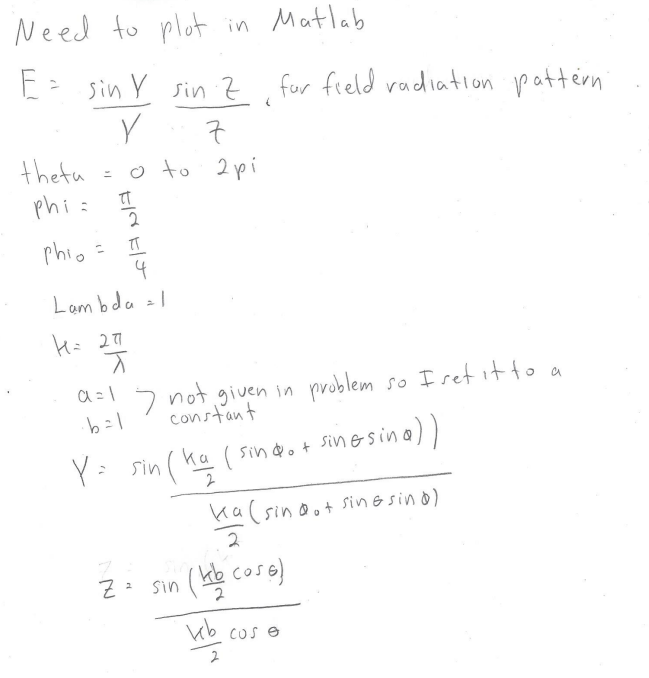 Need to plot in Matlab
E = sin Y / Y sin Z / Z , far field radiation pattern
theta = 0 to 2pi
phi = π/2
phi₀ = π/4
Lambda = 1
k = 2π/λ
a=1 > not given in problem so I set it to a
b=1 constant
Y = sin(ka/2 (sin Φ₀ + sinθ sinΦ)) / ka/2 (sin Φ₀ + sinθ sinΦ)
Z = sin(kb/2 cosθ) / kb/2 cosθ